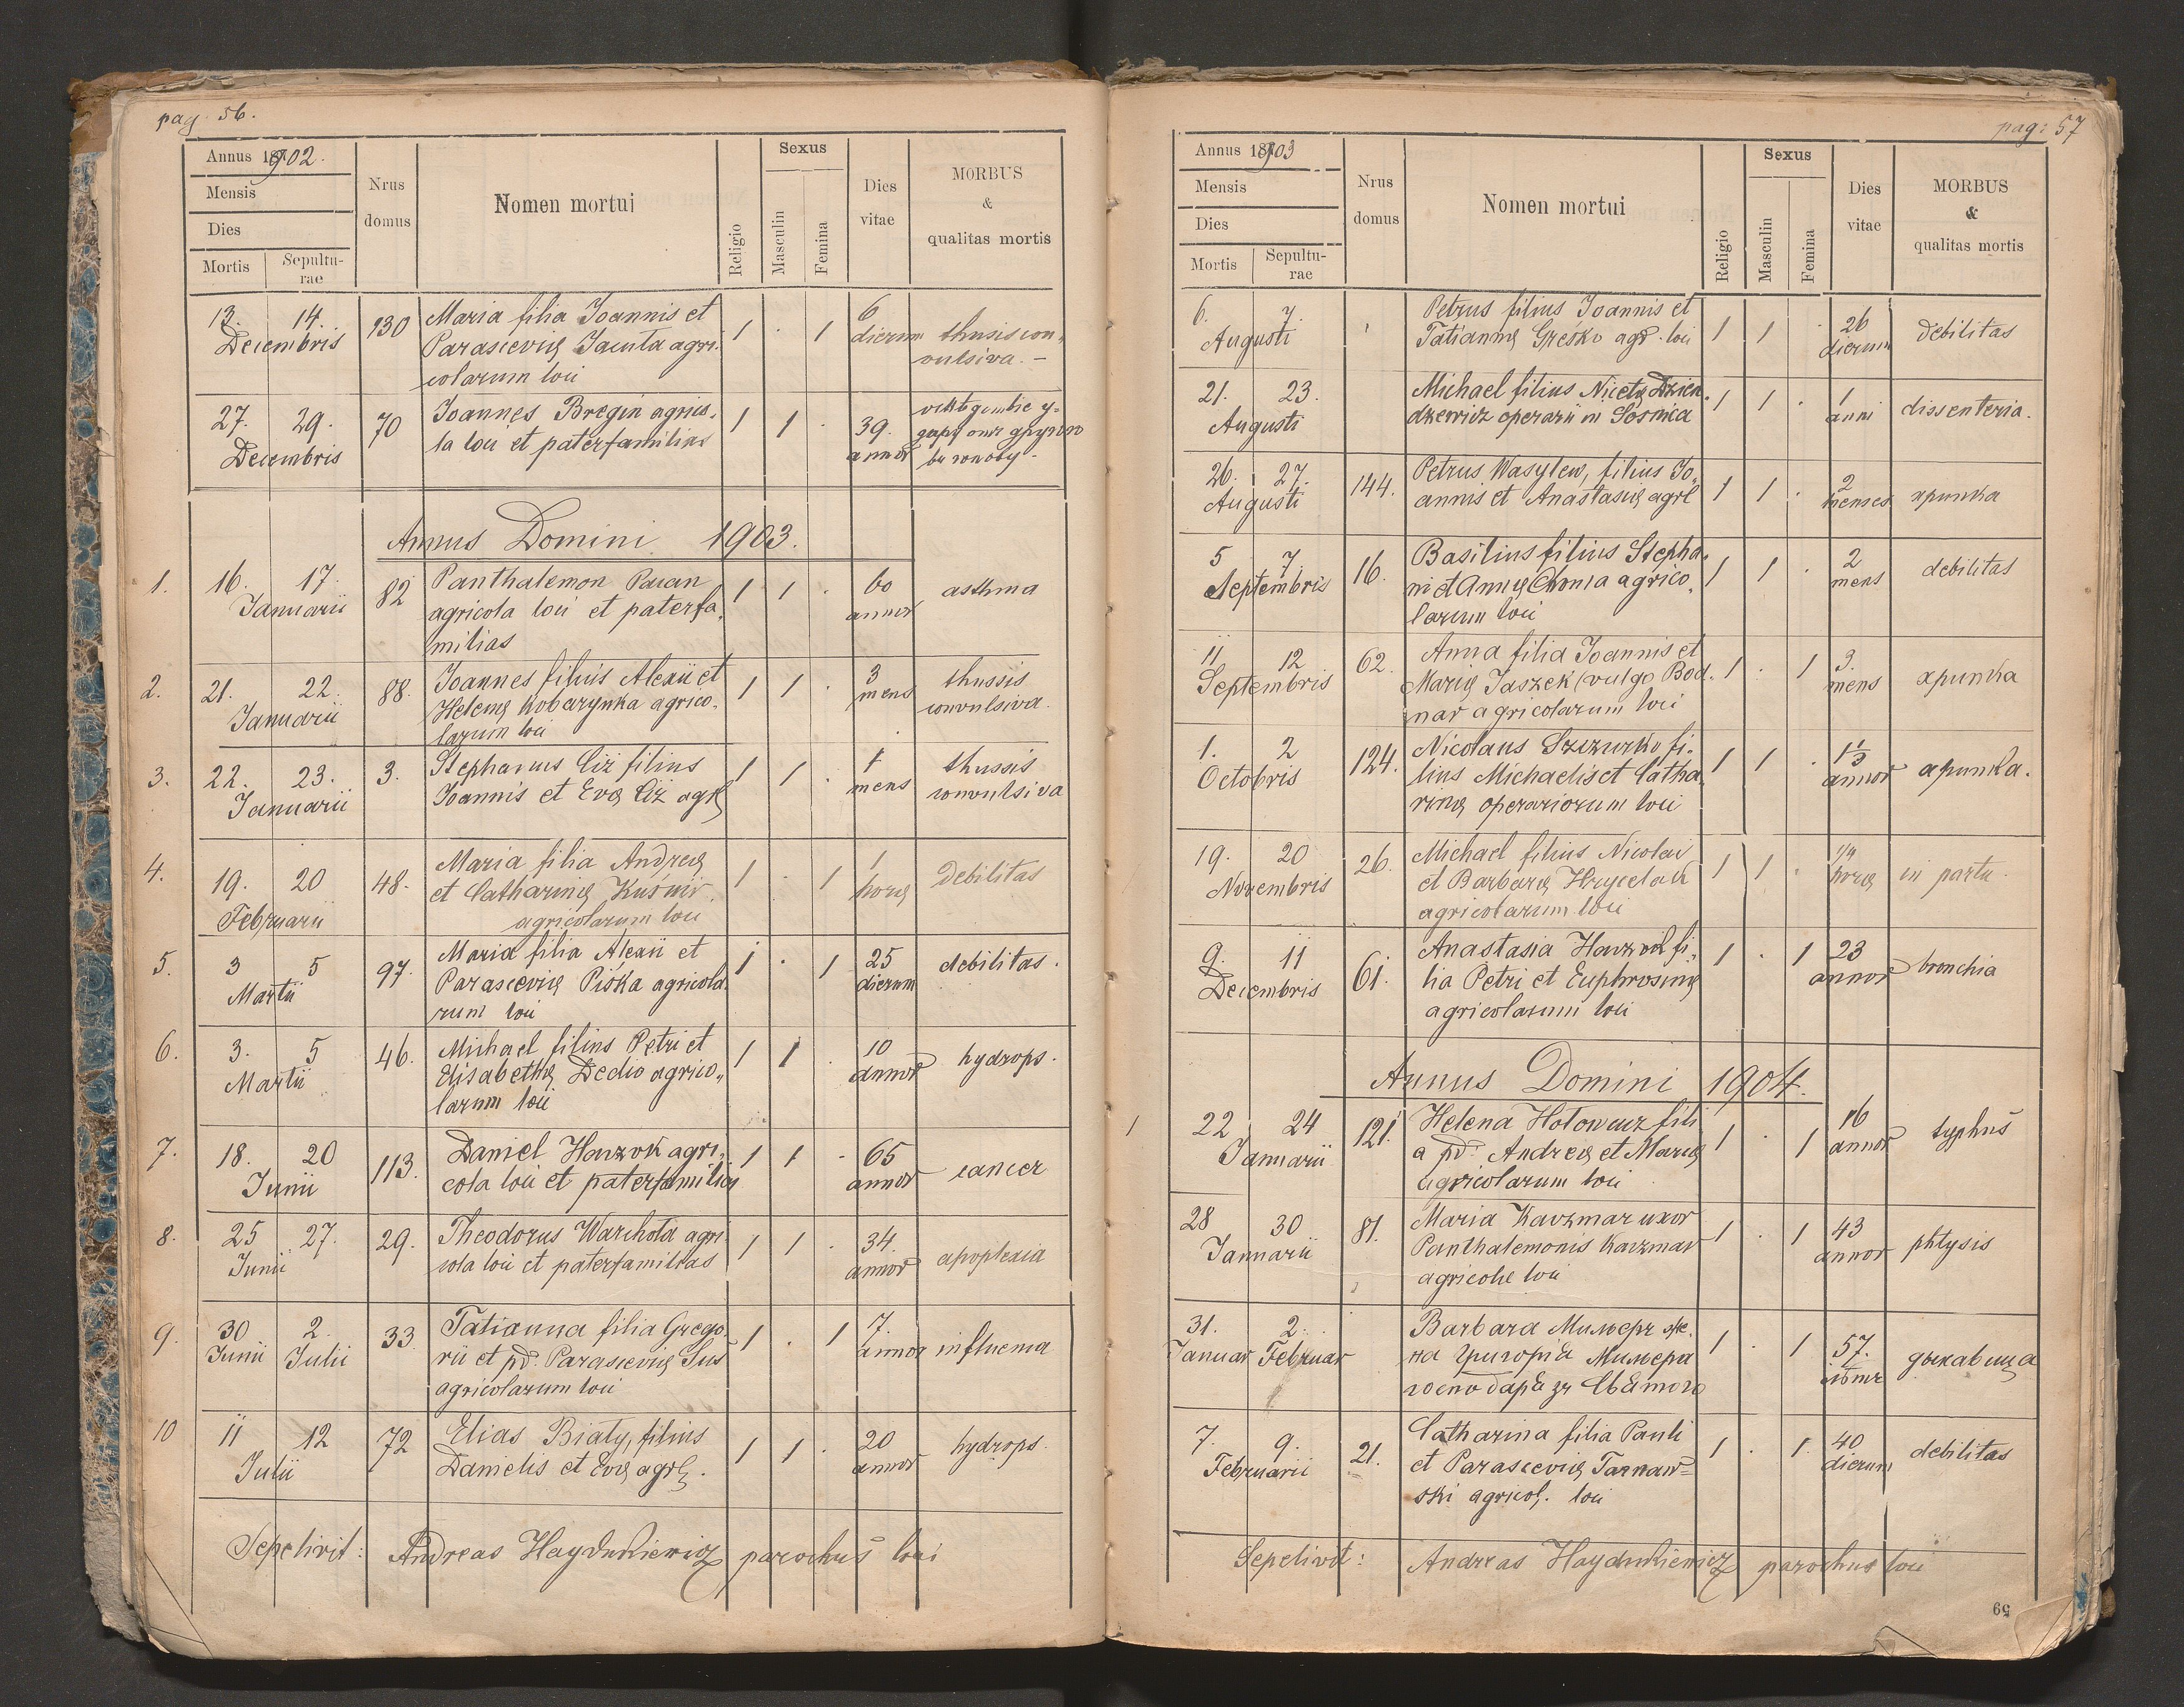 pag. 56.
Annus 1902.
Mensis
Dies
Mortis
Sepulturae
Nrus domus
Nomen mortui
Religio
Sexus
Masculin
Femina
Dies vitae
MORBUS & qualitas mortis
13. 14. 130 Maria filia Joannis et 1 . 1 6
Decembris Parasceviæ Jacuta agri- dierum thusis con-
colarum loci vulsiva. –
27. 29. 70 Joannes Bregin agrico- 1 1 . 39.
Decembris la loci et paterfamilias annor
Annus Domini 1903.
1. 16. 17. 82 Panthalemon Pacan 1 1 . 60 asthma
Januarii agricola loci et paterfa- annor
milias
2. 21. 22. 88. Joannes filius Alexii et 1 1 . 3 thussis
Januarii Helenæ Kobarynka agrico- mens convulsiva.
larum loci
3. 22. 23. 3. Stephanus Ciż filius 1 1 . 1 thussis
Januarii Joannis et Evæ Ciż agrl mens convulsiva
4. 19. 20 48. Maria filia Andreæ 1 . 1 1 debilitas
Februarii et Catharinæ Kuśnir horæ
agricolarum loci
5. 3 5 97. Maria filia Alexii et 1 . 1 25 debilitas.
Martii Parasceviæ Piska agricola- dierum
rum loci
6. 3. 5 46. Michael filius Petri et 1 1 . 10 hydrops.
Martii Elisabethæ Dedio agrico- annor
larum loci
7. 18. 20 113. Daniel Haczok agri- 1 1 . 65 cancer
Junii cola loci et paterfamilias annor
8. 25 27. 29. Theodorus Warchoła agri- 1 1 . 34. apoplexia
Junii cola loci et paterfamilias annor
9. 30 2. 33. Tatianna filia Grego- 1 . 1 7.
Junii Julii rii et pd. Parasceviæ Sus annor influenza
agricolarum loci
10 11 12 72 Elias Biały, filius 1 1 . 20 hydrops.
Julii Danielis et Evæ agrl. annor
Sepelivit: Andreas Haydukiewicz parochus loci
pag: 57
Annus 1903
Mensis
Dies
Mortis
Sepulturae
Nrus domus
Nomen mortui
Religio
Sexus
Masculin
Femina
Dies vitae
MORBUS & qualitas mortis
6. 7. Petrus filius Joannis et 1 1 . 26 debilitas
Augusti Tatiannæ Greśko agr. loci dierum
21. 23. Michael filius Nicetæ Dzien- 1 1 . 1 dissenteria.
Augusti dzewicz operarii in Sosnica anni
26. 27. 144. Petrus Wasylew, filius Jo- 1 1 . 2
Augusti annis et Anastasiæ agrl menses хрипка
5 7. 16. Basilius filius Stepha- 1 1 . 2 debilitas
Septembris ni et Annæ Choma agrico- mens
larum loci
11 12 62. Anna filia Joannis et 1 . 1 3.
Septembris Mariæ Jaszek (vulgo Bod- mens хрипка
nar agricolarum loci
1. 2 124. Nicolaus Szczurko fi- 1 1 . 1 1/3
Octobris lius Michaelis et Catha- annor хрипка.
rinæ operariorum loci
19. 20 26. Michael filius Nicolai 1 1 . 1/4 in partu.
Novembris et Barbaræ Hrycelak horæ
agricolarum loci
9. 11 61. Anastasia Haczok fi- 1 . 1 23 bronchia
Decembris lia Petri et Euphrosinæ annor
agricolarum loci
Annus Domini 1904.
1 22 24 121. Helena Hołowacz fili- 1 . 1 16 typhus
Januarii a pd. Andreæ et Mariæ annor
agricolarum loci
28 30 81. Maria Kaczmar uxor 1 . 1 43
Januarii Panthalemonis Kaczmar annor phtysis
agricolæ loci
31. 2. Barbara Мильеръ же- 1 . 1 57.
Januar Februar на Григорія Мильера лѣтъ дыхавица
господаря зъ Святого
7. 9. 21. Catharina filia Pauli 1 . 1. 40 debilitas
Februarii et Parasceviæ Tarnaw- dierum
ski agricol. loci
Sepelivit: Andreas Haydukiewicz parochus loci
69